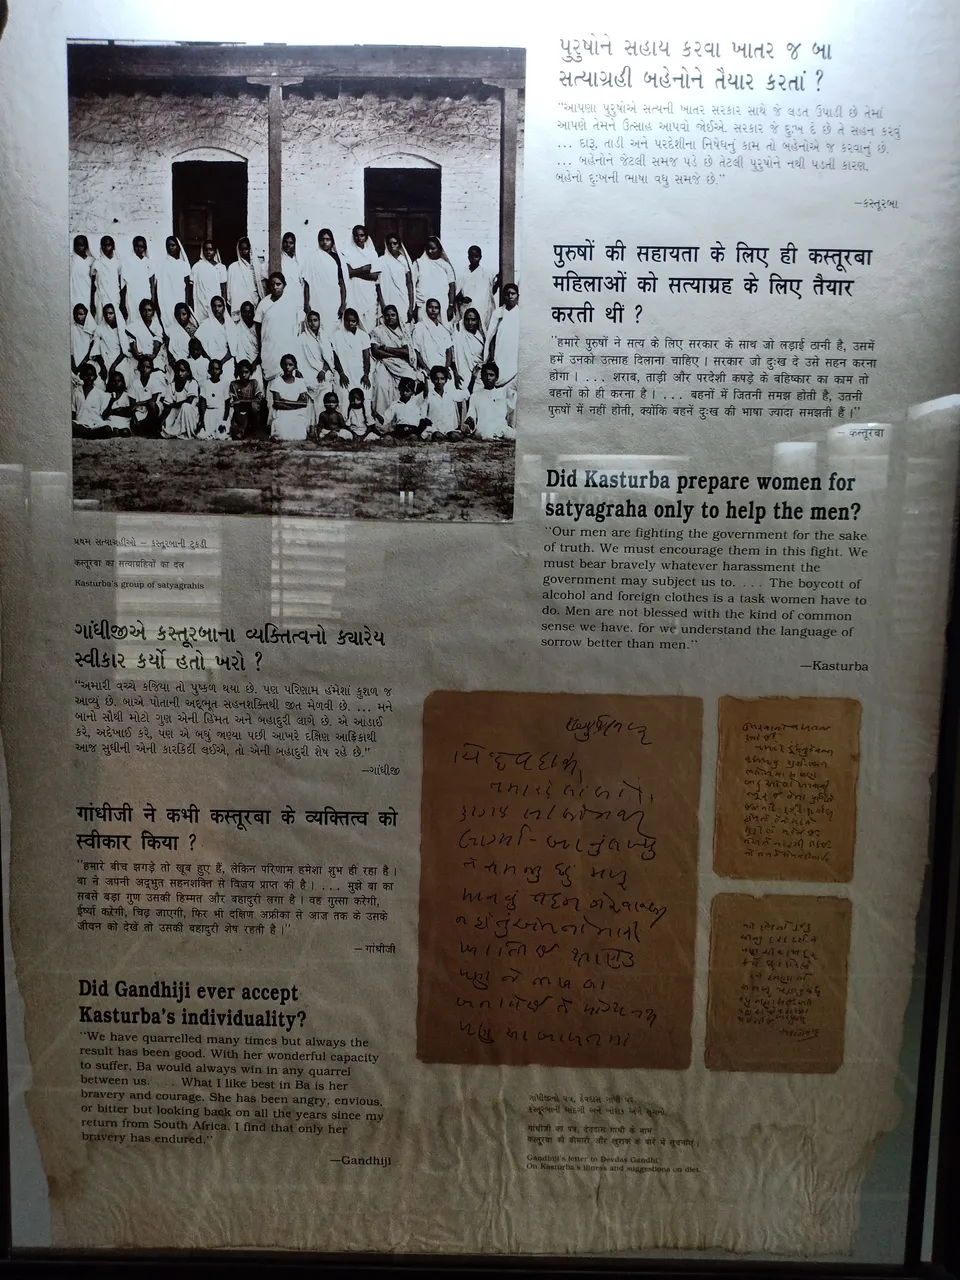 પુરુષોને સહાય કરવા ખાતર જ બા
સત્યાગ્રહી બહેનોને તૈયાર કરતાં ?
“આપણા પુરુષોએ સત્યની ખાતર સરકાર સાથે જે લડત ઉપાડી છે તેમાં
આપણે તેમને ઉત્સાહ આપવો જોઈએ. સરકાર જે દુઃખ દે છે તે સહન કરવું
... દારૂ, તાડી અને પરદેશીના નિષેધનું કામ તો બહેનોએ જ કરવાનું છે.
... બહેનોને જેટલી સમજ પડે છે તેટલી પુરુષોને નથી પડતી કારણ,
બહેનો દુઃખની ભાષા વધુ સમજે છે.”
—કસ્તૂરબા
पुरुषों की सहायता के लिए ही कस्तूरबा
महिलाओं को सत्याग्रह के लिए तैयार
करती थीं ?
“हमारे पुरुषों ने सत्य के लिए सरकार के साथ जो लड़ाई ठानी है, उसमें
हमें उनको उत्साह दिलाना चाहिए । सरकार जो दुःख दे उसे सहन करना
होगा । ... शराब, ताड़ी और परदेशी कपड़े के बहिष्कार का काम तो
बहनों को ही करना है । ... बहनों में जितनी समझ होती है, उतनी
पुरुषों में नहीं होती, क्योंकि बहनें दुःख की भाषा ज्यादा समझती हैं ।”
— कस्तूरबा
Did Kasturba prepare women for
satyagraha only to help the men?
“Our men are fighting the government for the sake
of truth. We must encourage them in this fight. We
must bear bravely whatever harassment the
government may subject us to. ... The boycott of
alcohol and foreign clothes is a task women have to
do. Men are not blessed with the kind of common
sense we have, for we understand the language of
sorrow better than men.”
—Kasturba
પ્રથમ સત્યાગ્રહીઓ – કસ્તૂરબાની ટુકડી
कस्तूरबा का सत्याग्रहियों का दल
Kasturba's group of satyagrahis
ગાંધીજીએ કસ્તૂરબાના વ્યક્તિત્વનો ક્યારેય
સ્વીકાર કર્યો હતો ખરો ?
“અમારી વચ્ચે કજિયા તો પુષ્કળ થયા છે. પણ પરિણામ હંમેશાં કુશળ જ
આવ્યું છે. બાએ પોતાની અદ્ભુત સહનશક્તિથી જીત મેળવી છે. ... મને
બાનો સૌથી મોટો ગુણ એની હિંમત અને બહાદુરી લાગે છે. એ આડાઈ
કરે, અદેખાઈ કરે, પણ એ બધું જાણ્યા પછી આખરે દક્ષિણ આફ્રિકાથી
આજ સુધીની એની કારકિર્દી લઈએ, તો એની બહાદુરી શેષ રહે છે.”
—ગાંધીજી
गांधीजी ने कभी कस्तूरबा के व्यक्तित्व को
स्वीकार किया ?
“हमारे बीच झगड़े तो खूब हुए हैं, लेकिन परिणाम हमेशा शुभ ही रहा है ।
बा ने अपनी अद्भुत सहनशक्ति से विजय प्राप्त की है । ... मुझे बा का
सबसे बड़ा गुण उसकी हिम्मत और बहादुरी लगा है । वह गुस्सा करेगी,
ईर्ष्या करेगी, चिढ़ जाएगी, फिर भी दक्षिण अफ्रीका से आज तक के उसके
जीवन को देखें तो उसकी बहादुरी शेष रहती है ।”
— गांधीजी
Did Gandhiji ever accept
Kasturba's individuality?
“We have quarrelled many times but always the
result has been good. With her wonderful capacity
to suffer, Ba would always win in any quarrel
between us. ... What I like best in Ba is her
bravery and courage. She has been angry, envious,
or bitter but looking back on all the years since my
return from South Africa, I find that only her
bravery has endured.”
—Gandhiji
ગાંધીજીનો પત્ર, દેવદાસ ગાંધી પર
કસ્તૂરબાની માંદગી અને ખોરાક અંગે સૂચનો.
गांधीजी का पत्र, देवदास गांधी के नाम
कस्तूरबा की बीमारी और खुराक के बारे में सूचनाएं ।
Gandhiji's letter to Devdas Gandhi
On Kasturba's illness and suggestions on diet.